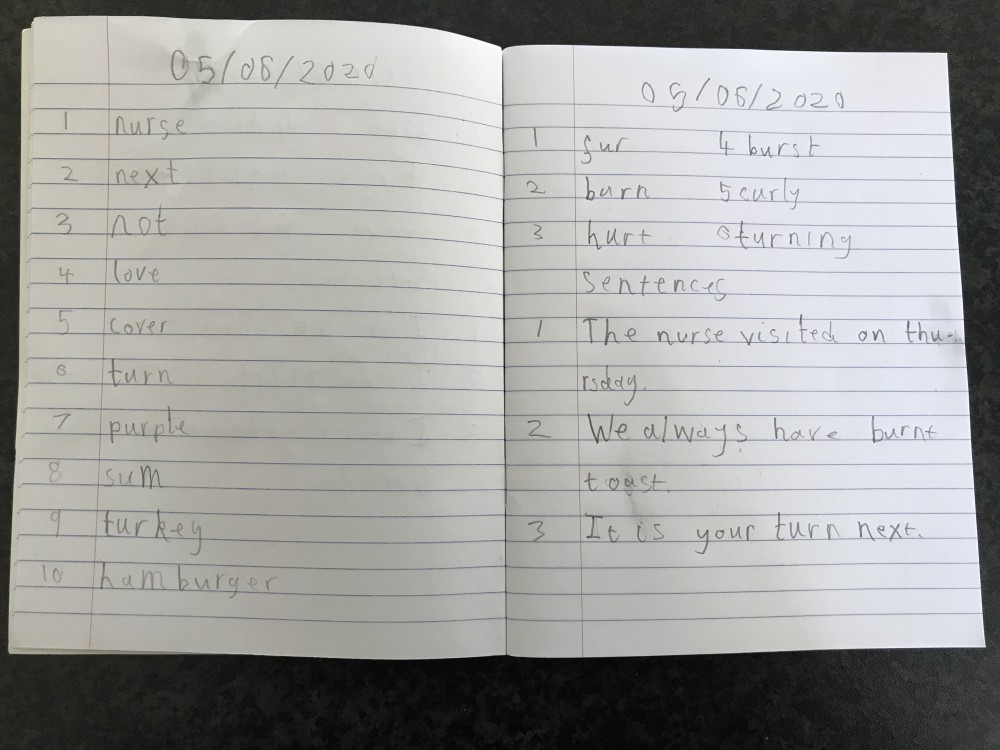 05/06/2020
1 nurse
2 next
3 not
4 love
5 cover
6 turn
7 purple
8 sum
9 turkey
10 hamburger
05/06/2020
1 fur 4 burst
2 burn 5 curly
3 hurt 6 turning
Sentences
1 The nurse visited on thu-
rsday.
2 We always have burnt
toast.
3 It is your turn next.